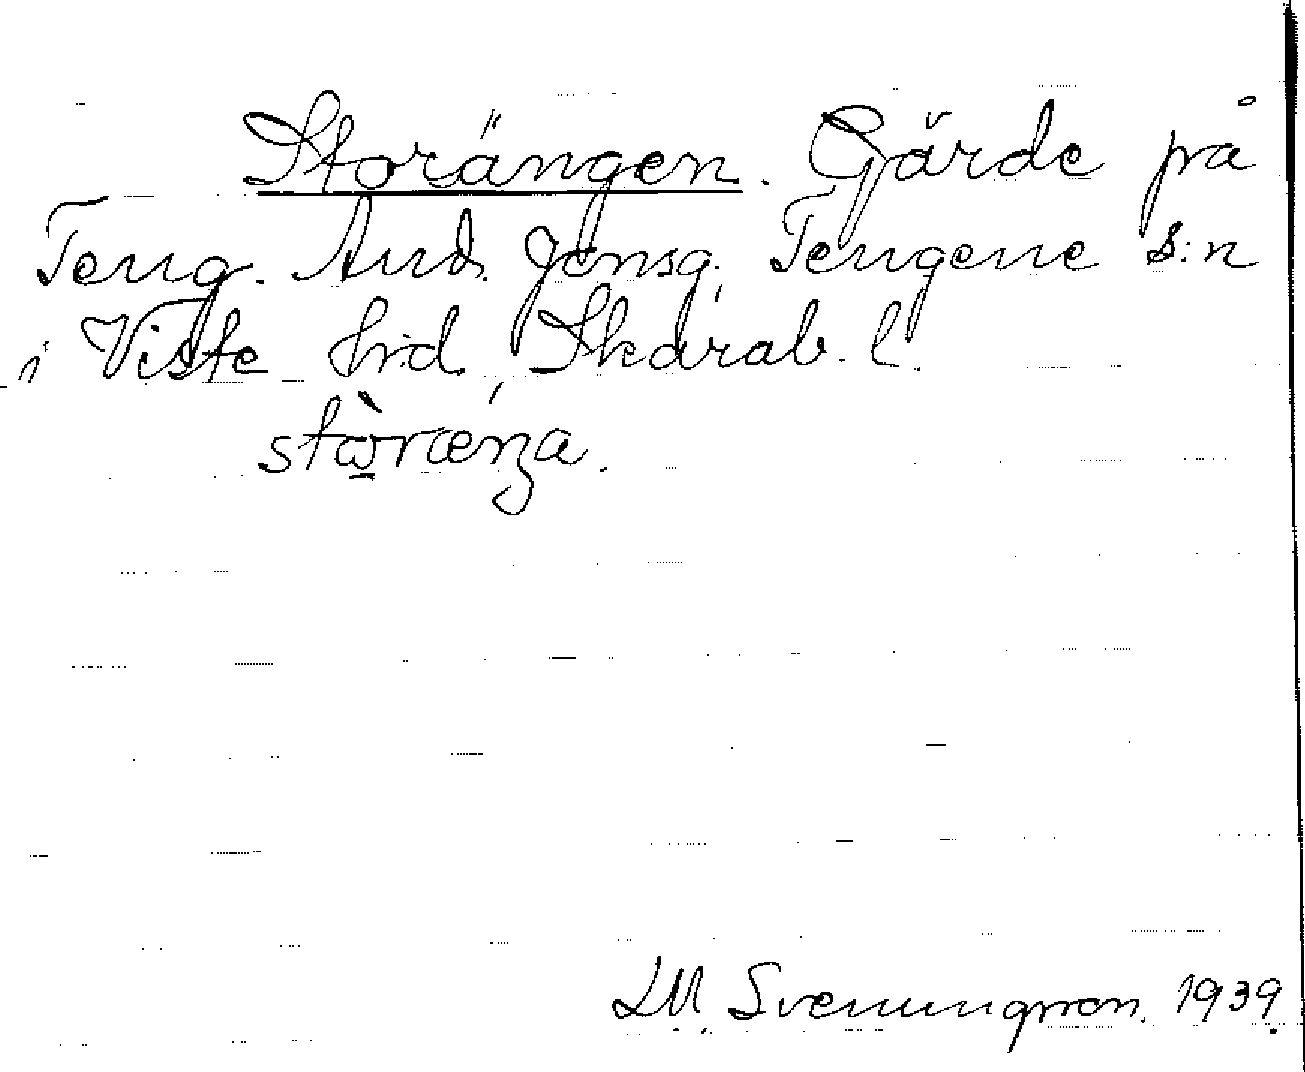 Storängen. Gärde på
Teng. And. Jonsg. Tengene s:n
i Viste hrd, Skarab. l.
LM. Svenungsson. 1939.